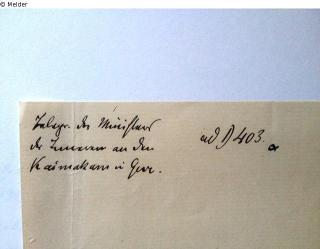 © Melder
Telegr. des Ministers
des Inneren an den
Kaimakam in Gwe.
ad 1) 403. a